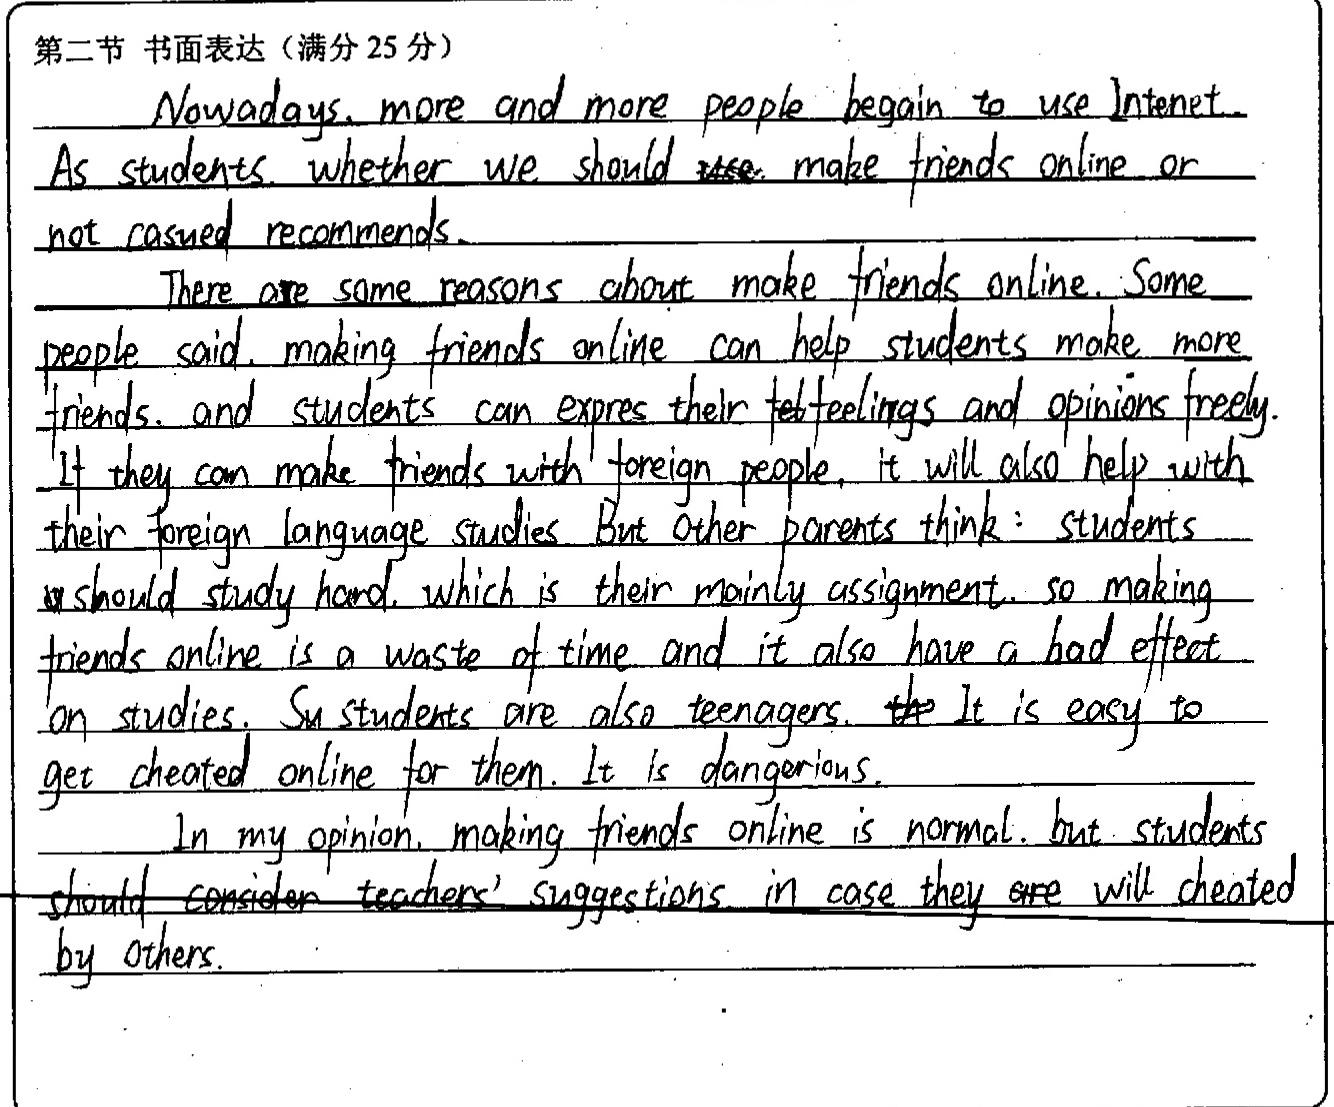 第二节 书面表达（满分 25 分）
Nowadays. more and more people begain to use Intenet.
As students. whether we should use. make friends online or
not casued recommends.
There are some reasons about make friends online. Some
people said. making friends online can help students make more
friends. and students can expres their feelings and opinions freely.
If they can make friends with foreign people, it will also help with
their foreign language studies But other parents think: students
should study hard. which is their mainly assignment. so making
friends online is a waste of time and it also have a bad effect
on studies. Su students are also teenagers. the It is easy to
get cheated online for them. It is dangerious.
In my opinion. making friends online is normal. but students
should consider teachers' suggestions in case they are will cheated
by others.